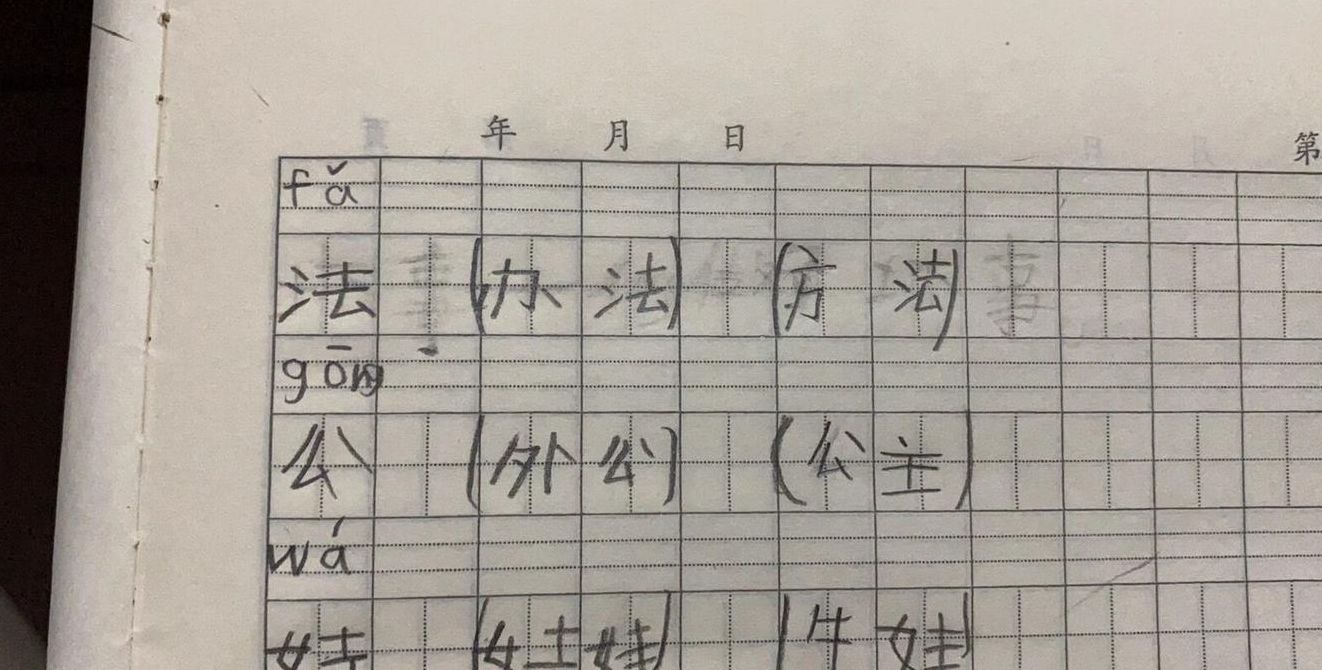 年 月 日 第
fǎ
法 (办法) (方法)
gōng
公 (外公) (公主)
wá
娃 (娃娃) (牛娃)